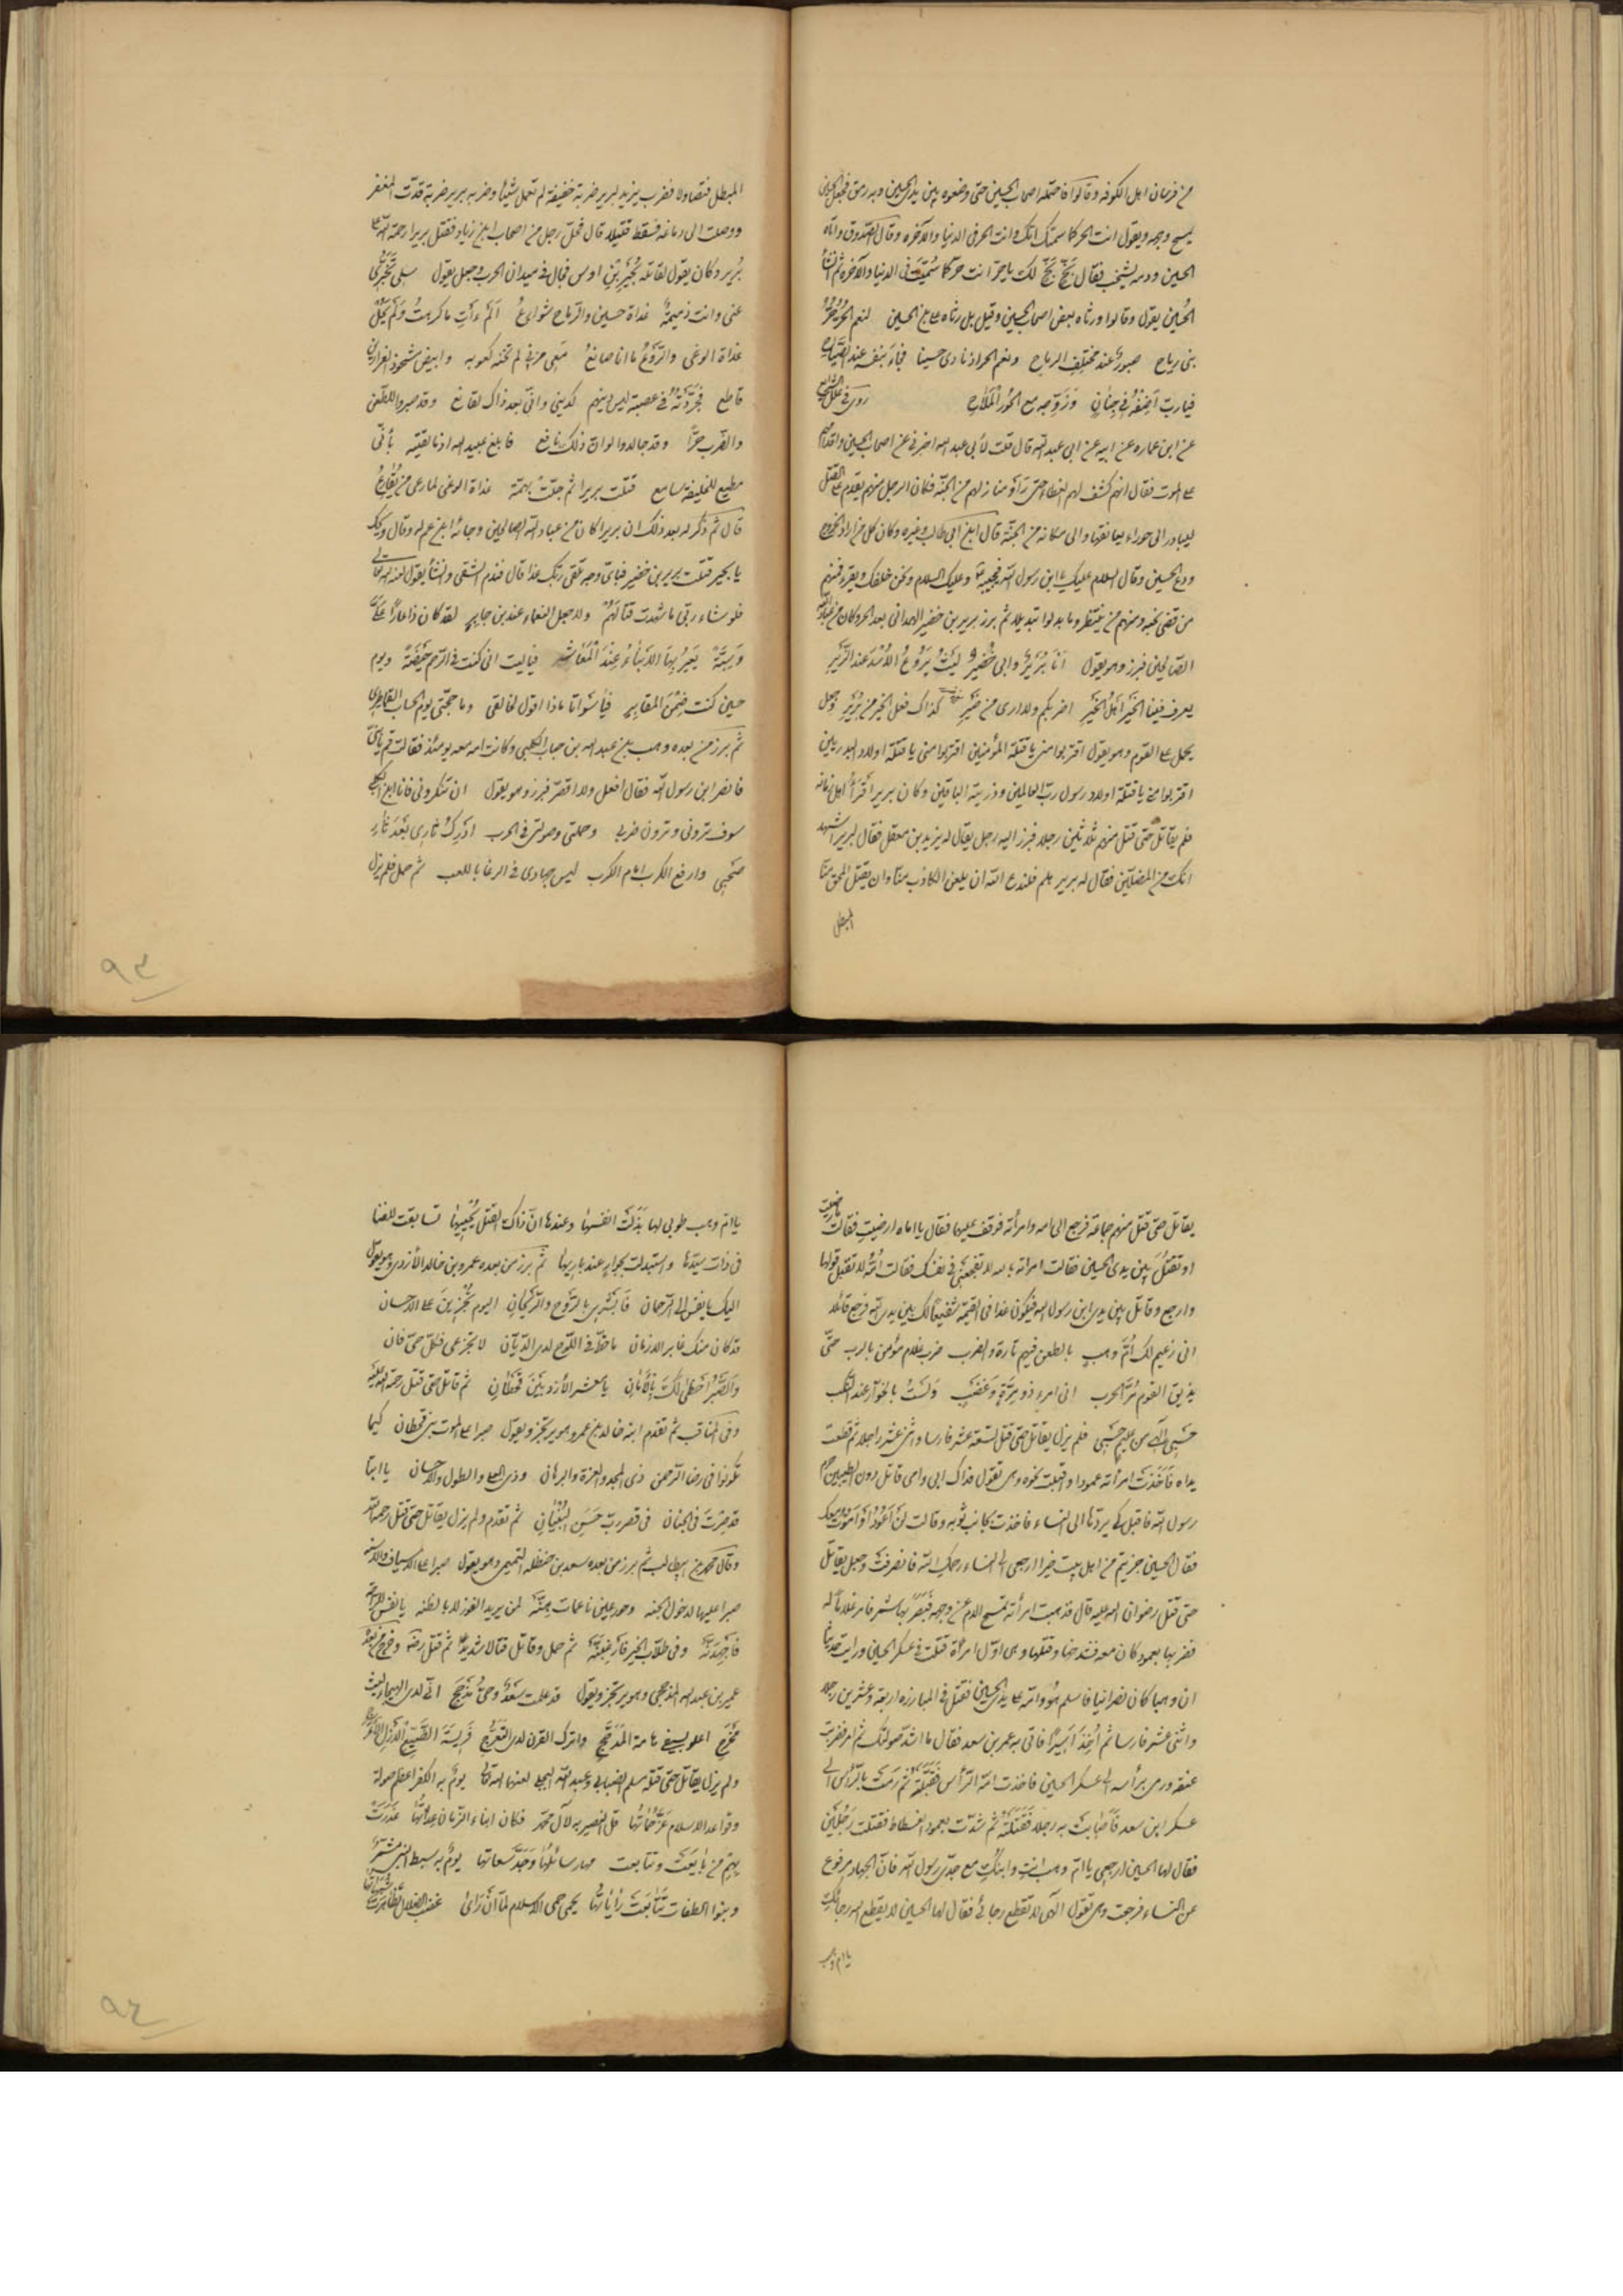 من فرسان اهل الكوفه وقالوا فاحتمله اصحاب الحسين حتى وضعوه بين يدى الحسين وبه رمق فجعل الحسين
يمسح وجهه ويقول انت الحر كما سمتك امك وانت الحر فى الدنيا والآخره وقال الصدوق واتاه
الحسين ودمه يشخب فقال بَخٍّ بَخٍّ لك يا حر انت حر كما سُمّيتَ فى الدنيا والآخره ثم انشأ
الحُسين يقول وقالوا ورثاه بعض اصحاب الحسين وقيل بل رثاه على بن الحسين لنعم الحرُّ حُرُّ
بنى رياح صبورٌ عند مختلف الرماح ونعم الحر اذ نادى حسينا فجاد بنفسه عند الصياح
فيا رب اَضِفْهُ فى جِنانٍ وَزَوِّجه مع الحُورِ المِلاح روى فى علل الشرايع
عن ابن عماره عن ابيه عن ابى عبد الله قال قلت لأبى عبد الله اخبرنى عن اصحاب الحسين واقدامهم
على الموت فقال انهم كشف لهم الغطاء حتى رأو منازلهم من الجنة فكان الرجل منهم يقدم على القتل
ليبادر الى حوراء يعانقها والى مكانه من الجنة قال ابن ابى طالب وغيره وكان كل من اراد الخروج
ودع الحسين وقال السلام عليك يا بن رسول الله فيجيبه وعليك السلام ونحن خلفك ويقرء فمنهم
من قضى نحبه ومنهم من ينتظر وما بدلوا تبديلا ثم برز برير بن خضير الهمدانى بعد الحر وكان من عباد الله
الصالحين فبرز وهو يقول اَنَا بُرَيْرٌ وابى خُضَيْرٌ ليثٌ يَرُوعُ الاُسْدَ عند الزَّئر
يعرف فينا الخَيْرَ اَهلُ الخَيْرِ اضربكم ولا ارى من ضَيْرٍ كذاك فعل الخير من بُرَيْر وجعل
يحمل على القوم وهو يقول اقتربوا منى يا قتلة المؤمنين اقتربوا منى يا قتلة اولاد البدريين
اقتربوا منى يا قتلة اولاد رسول رب العالمين وذريته الباقين وكان برير اقرأ اهل زمانه
فلم يقاتل حتى قتل منهم ثلاثين رجلا فبرز اليه رجل يقال له يزيد بن معقل فقال لبرير اشهد
انك من المضلين فقال له برير هلم فلندع الله ان يلعن الكاذب منّا وان يقتل المحق منّا
المبطل
المبطل فتصاولا فضرب يزيد لبرير ضربة خفيفة لم تعمل شيئا وضربه برير ضربة قدّت المغفر
ووصلت الى دماغه فسقط قتيلا قال فحمل رجل من اصحاب ابن زياد فقتل بريرا رحمة الله
بُرير وكان يقول لقاتله بُجَيرُ بْنِ اوس فجال فى ميدان الحرب وجعل يقول سلى تُخْبَرى
عنى وانت ذميمةٌ غداة حسين والرماح شوارعُ اَلَمْ آتِ ما كرهتُ وَلَمْ يُحْلْ
غداة الوغى والرَّوْعُ ما انا صانعُ مَعِى مزنى لم تخنه كعوبه وابيض مشحوذ الغرارين
قاطع فجَرَّدْتُهُ فى عصبة ليس دينهم كدينى وانى بعد ذاك لقانع وقد صبروا للطعن
والضرب حُرًّا وقد جالدوا لو ان ذلك نافع فابلغ عبيد الله اذ ما لقيته بأنى
مطيع للخليفة سامع قتلت بريرا ثم جلت بهمّة غداة الوغى لما دعى من يُقارعُ
قال ثم ذُكر له بعد ذلك ان بريرا كان من عباد الله الصالحين وجائه ابن عم له وقال ويحك
يا بجير قتلت برير بن خضير فباى وجه تلقى ربك غدا قال فندم الشقى وانشأ يقول لعنه الله تعالى
فلو شاء ربى ما شهدت قتالَهُمْ ولا جعل النعماء عند بن جاير لقد كان ذا عارًا علىَّ
وَسِبَّةً يُعَيَّرُ بِهَا الاَبناءُ عِنْدَ الْمَعَاشر فياليت انى كنت فى الرَّحِمِ حَيْضَةً ويوم
حسين كنت ضِمْنَ المقابِرِ فيا سَوأتا ماذا اقول لخالقى وما حجّتى يوم الحساب القماطرى
ثم برز من بعده وهب بن عبد الله بن حباب الكلبى وكانت امه معه يومئذ فقالت قم يا بُنَىَّ
فانصر ابن رسول الله فقال افعل ولا اقصّر فبرز وهو يقول ان تنكرونى فانا ابن الكلبى
سوف ترونى وترون ضربى وحملتى وصولتى فى الحرب ادْرِكُ ثارِى بَعْدَ ثارِ
صَحْبِى وارفع الكرب امام الكرب ليس جهادى فى الوغا باللعب ثم حمل فلم يزل
٩٣
يقاتل حتى قتل منهم جماعة فرجع الى امه وامرأته فوقف عليها فقال يا اماه ارضيت فقالت ما رضيت
او تقتل بين يدى الحسين فقالت امرأته بالله لا تفجعنى فى نفسك فقالت امّه لا تقبل قولها
وارجع وقاتل بين يدى ابن رسول الله فيكون غدا فى القيمة شفيعًا لك بين يدى الله فرجع قائلا
انى زعيم لك اُمَّ وهب بالطعن فيهم تارة والضرب ضرب غلام مؤمن بالرب حتى
يذيق القوم مُرَّ الحرب انى امرء ذو مِرَّةٍ وَعَضْبٍ وَلَسْتُ بالخوّار عند النكب
حَسْبِى اِلٰهى من عليم حَسْبِى فلم يزل يقاتل حتى قتل تسعة عشر فارسا واثنى عشر راجلا ثم قطعت
يداه فَاَخَذَتْ امرأته عمودا واقبلت نحوه وهى تقول فداك ابى وامى قاتل دون الطيبين حرم
رسول الله فاقبل كى يردّها الى النساء فاخذت بجانب ثوبه وقالت لَنْ اَعُودَ اَوْ اَمُوتَ معك
فقال الحسين جزيتم من اهل بيت خيرا ارجعى الى النساء رحمكِ الله فانصرفت وجعل يقاتل
حتى قتل رضوان الله عليه قال فذهبت امرأته تمسح الدم عن وجهه فَبَصُرَ بها شمر فامر غلاما له
فضربها بعمود كان معه فشدخها وقتلها وهى اوّل امرأة قتلت فى عسكر الحسين ورايت حديثا
ان وهبا كان نصرانيا فاسلم هُوَ وامّه على يدى الحسين فقتل فى المبارزة اربعة وعشرين رجلا
واثنى عشر فارسا ثم اُخِذَ اَسِيرًا فاتى به عمر بن سعد فقال ما اشدّ صولتك ثم امر فضربت
عنقه ورمى برأسه الى عسكر الحسين فاخذت امّه الرأس فَقَبَّلَتْهُ ثم رَمَتْ بالرأس الى
عسكر ابن سعد فَأَصَابَتْ به رجلا فَقَتَلَتْهُ ثم شدّت بعمود الفسطاط فقتلت رَجُلَيْنِ
فقال لها الحسين ارجعى يا امّ وهب انتِ وابنُكِ مع جدّى رسول الله فانّ الجهاد مرفوع
عن النساء فرجعت وهى تقول الٰهى لا تقطع رجائى فقال لها الحسين لا يقطع الله رجائكِ
يا ام وهب
يا امّ وهب طوبى لها بَذَلَتْ انفسها وعندها انّ ذاك القتل يُحْيِيها تسابقت للفنا
فى ذات سيّدها واستبدلت بجوارٍ عند باريها ثم برز من بعده عمرو بن خالد الأزدى وهو يقول
اليك يا نفس الى الرّحمان فَاَبْشِرِى بالرَّوْحِ والرَّيْحانِ اليوم تُجْزَينَ على الاحسان
قد كان منك غابر الازمان ما خُطَّ فى اللّوح لدى الدّيّان لا تجزعى فكل حىّ فان
وَالصَّبْرُ اَحْظى لَكَ بِالْأَمَانِ يا معشر الأزد بَنِى قَحْطانِ ثم قاتل حتى قتل رحمة الله عليه
وفى المناقب ثم تقدم ابنه خالد بن عمرو وهو يرتجز ويقول صبرا على الموت بنى قحطان كيما
تكونوا فى رضا الرّحمن ذى المجد والعزة والبرهان وذى العلى والطول والاحسان يا ابتا
قد صِرْتَ فى الجنان فى قصر ربّ حَسَنِ البُنْيَانِ ثم تقدم ولم يزل يقاتل حتى قتل رحمه الله
وقال محمد بن ابيطالب ثم برز من بعده سعد بن حنظله التميمى وهو يقول صبرا على الاسياف والاسنه
صبرا عليها لدخول الجنه وحور عين ناعمات هِنَّه لمن يريد الفوز لا بالظنه يا نفس للراحة
فَاجْهَدِنَّه وفى طلاب الخير فارغبنَّه ثم حمل وقاتل قتالا شديدا ثم قتل وخرج من بعده
عمير بن عبد الله المذحجى وهو يرتجز ويقول قد علمت سَعْدٌ وحىُّ مَذْحِجِ انّى لدى الهيجاء ليث
مُحْرَجِ اعلو بسيفى هامة المُدَجَّجِ واترك القرن لدى التعرُّجِ فَرِيسَةَ الضَّبُعِ الْأَزَلِّ الأعرج
ولم يزل يقاتل حتى قتله مسلم الضبابى وعبد الله البجلى لعنهما الله تعالى يومٌ به الكفر اعظم صولة
وقواعد الاسلام عَزَّ حُمَاتُها قلّ النصير به لآل محمد فكان ابناء الزمان عِداتُها غَدَرَتْ
بهم من بايعت وتتابعت منها رسائلها وَجَدَّ سعاتها يومٌ به سبط النبى
وبنوا الطغات تَتابَعَتْ راياتُها يحمى حمى الاسلام لمّا اَنْ رَأى عُصَبَ الضلال تظاهرت
٩٤